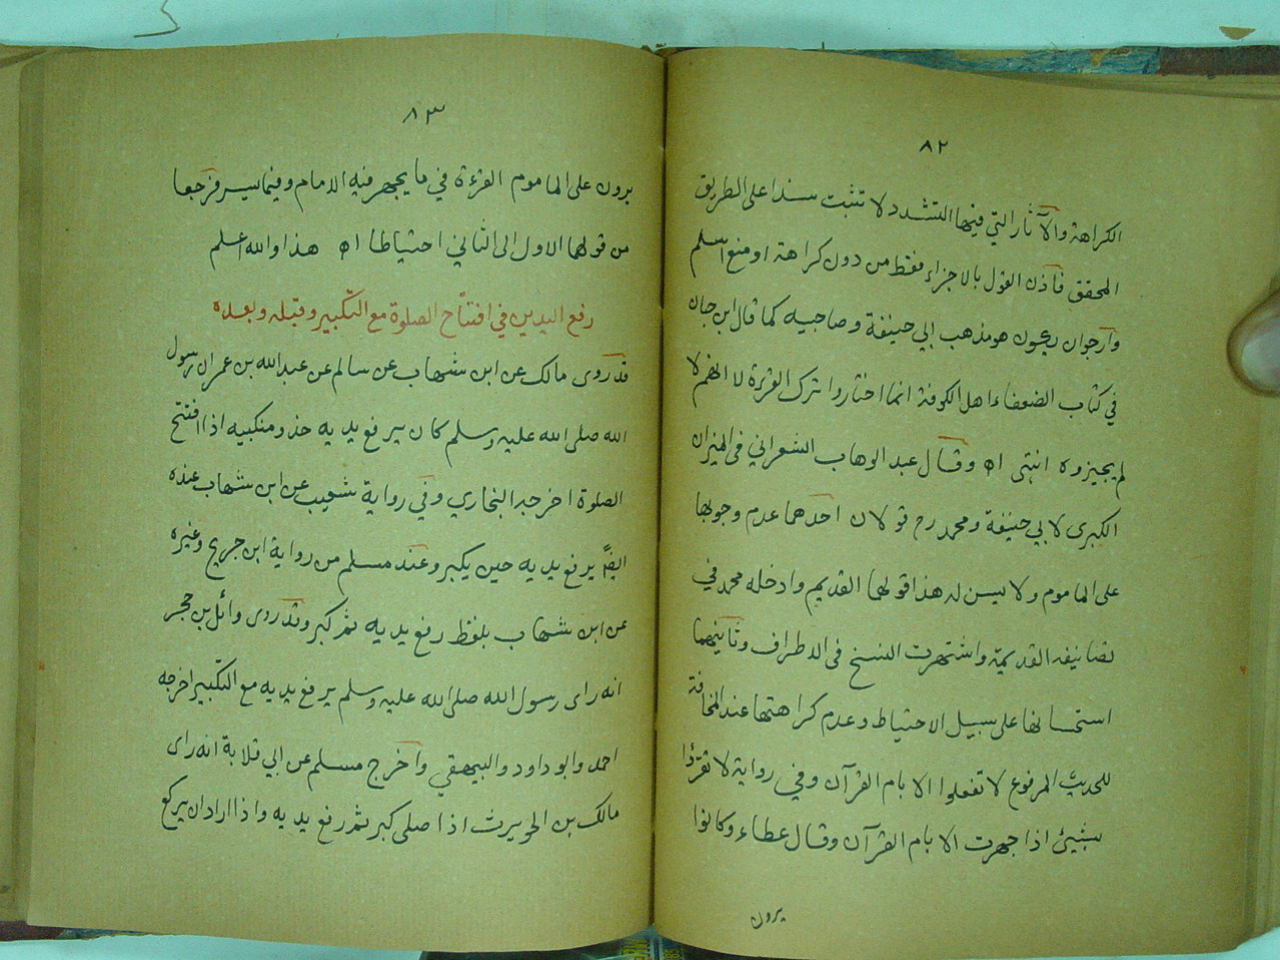 ٨٢
الكراهة والآثار التي فيها التشدد لا تثبت سندا على الطريق
المحقق فاذن القول بالاجزاء فقط من دون كراهة او منع اسلم
وارجو ان يكون هو مذهب ابي حنيفة وصاحبيه كما قال ابن حبان
في كتاب الضعفاء اهل الكوفة انما اختاروا ترك القرءة لا انهم لا
لم يجيزوه انتهى اه وقال عبد الوهاب الشعراني في الميزان
الكبرى لابي حنيفة ومحمد رح قولان احدهما عدم وجوبها
على الماموم ولا يسن له هذا قولهما القديم وادخله محمد في
تصانيفه القديمة واشتهرت النسخ في الاطراف وثانيهما
استحسانها على سبيل الاحتياط وعدم كراهتها عند المخافتة
للحديث المرفوع لا تفعلوا الا بام القرآن وفي رواية لا تقرؤا
بشيئ اذا جهرت الا بام القرآن وقال عطاء وكانوا
يرون
٨٣
يرون على الماموم القرءة في ما يجهر فيه الامام وفيما يسر فرجعا
من قولهما الاول الى الثاني احتياطا اه هذا والله اعلم
رفع اليدين في افتتاح الصلوة مع التكبير وقبله وبعده
قد روى مالك عن ابن شهاب عن سالم عن عبد الله بن عمر ان رسول
الله صلى الله عليه وسلم كان يرفع يديه حذو منكبيه اذا افتتح
الصلوة اخرجه البخاري وفي رواية شعيب عن ابن شهاب عنده
ايضًا يرفع يديه حين يكبر وعند مسلم من رواية ابن جريج وغيره
عن ابن شهاب بلفظ رفع يديه ثم كبر وقد روى وائل بن حجر
انه راى رسول الله صلى الله عليه وسلم يرفع يديه مع التكبير اخرجه
احمد وابو داود والبيهقي واخرج مسلم عن ابي قلابة انه راى
مالك بن الحويرث اذا صلى كبر ثم رفع يديه واذا اراد ان يركع